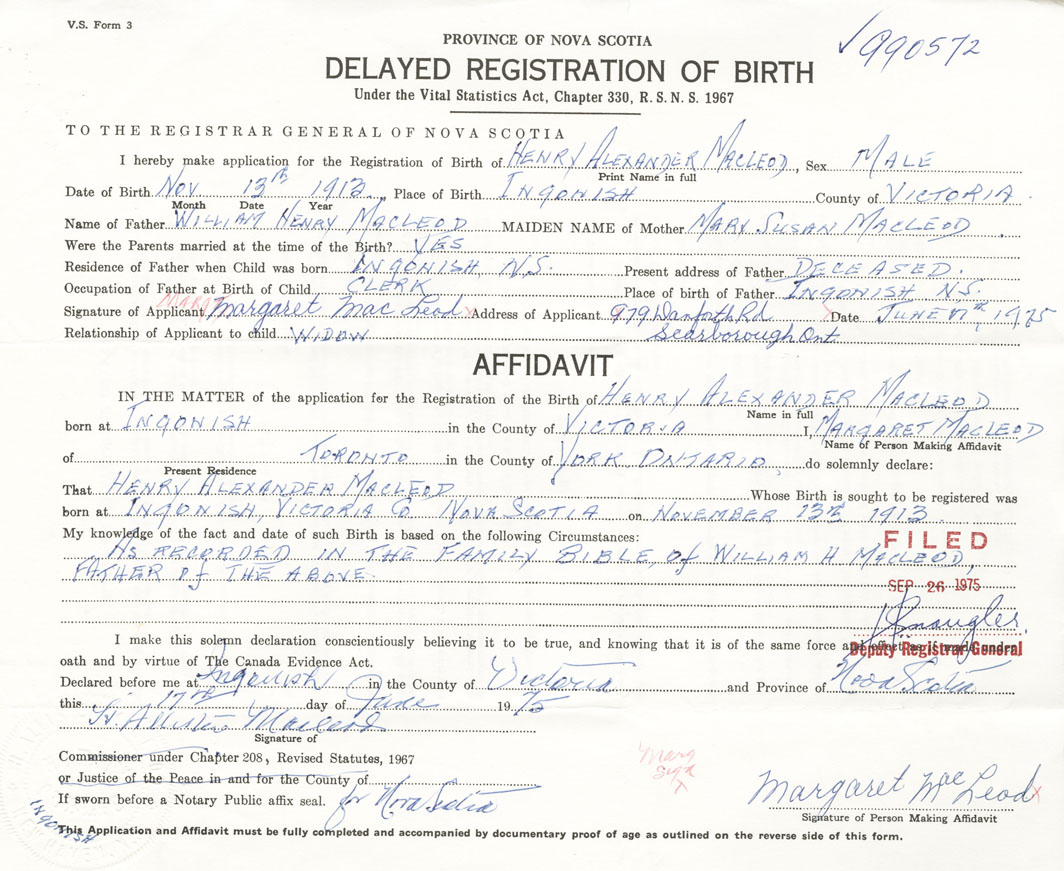 V.S. Form 3
✓990572
PROVINCE OF NOVA SCOTIA
DELAYED REGISTRATION OF BIRTH
Under the Vital Statistics Act, Chapter 330, R.S.N.S. 1967
TO THE REGISTRAR GENERAL OF NOVA SCOTIA
I hereby make application for the Registration of Birth of HENRY ALEXANDER MACLEOD, Sex MALE
Print Name in full
Date of Birth NOV 13TH 1913, Place of Birth INGONISH County of VICTORIA
Month Date Year
Name of Father WILLIAM HENRY MACLEOD MAIDEN NAME of Mother MARY SUSAN MACLEOD
Were the Parents married at the time of the Birth? YES
Residence of Father when Child was born INGONISH N.S. Present address of Father DECEASED.
Occupation of Father at Birth of Child CLERK Place of birth of Father INGONISH N.S.
Signature of Applicant Margaret Mac Leod x Address of Applicant 979 Danforth Rd x Date JUNE 17TH, 1975
Relationship of Applicant to child WIDOW Scarborough Ont
AFFIDAVIT
IN THE MATTER of the application for the Registration of the Birth of HENRY ALEXANDER MACLEOD
Name in full
born at INGONISH in the County of VICTORIA I, MARGARET MACLEOD
Name of Person Making Affidavit
of TORONTO in the County of YORK ONTARIO, do solemnly declare:
Present Residence
That HENRY ALEXANDER MACLEOD Whose Birth is sought to be registered was
born at INGONISH, VICTORIA CO NOVA SCOTIA on NOVEMBER 13TH 1913.
My knowledge of the fact and date of such Birth is based on the following Circumstances:
AS RECORDED IN THE FAMILY BIBLE, of WILLIAM H MACLEOD,
FATHER of THE ABOVE
FILED
SEP 26 1975
I make this solemn declaration conscientiously believing it to be true, and knowing that it is of the same force and effect as if made under
Deputy Registrar General
oath and by virtue of The Canada Evidence Act.
Declared before me at Ingonish in the County of Victoria and Province of Nova Scotia
this 17th day of June 1975
Macleod
Signature of
Commissioner under Chapter 208, Revised Statutes, 1967
or Justice of the Peace in and for the County of
If sworn before a Notary Public affix seal. for Nova Scotia
Marg
Sign
x
Margaret Mac Leod x
Signature of Person Making Affidavit
INGONISH
This Application and Affidavit must be fully completed and accompanied by documentary proof of age as outlined on the reverse side of this form.